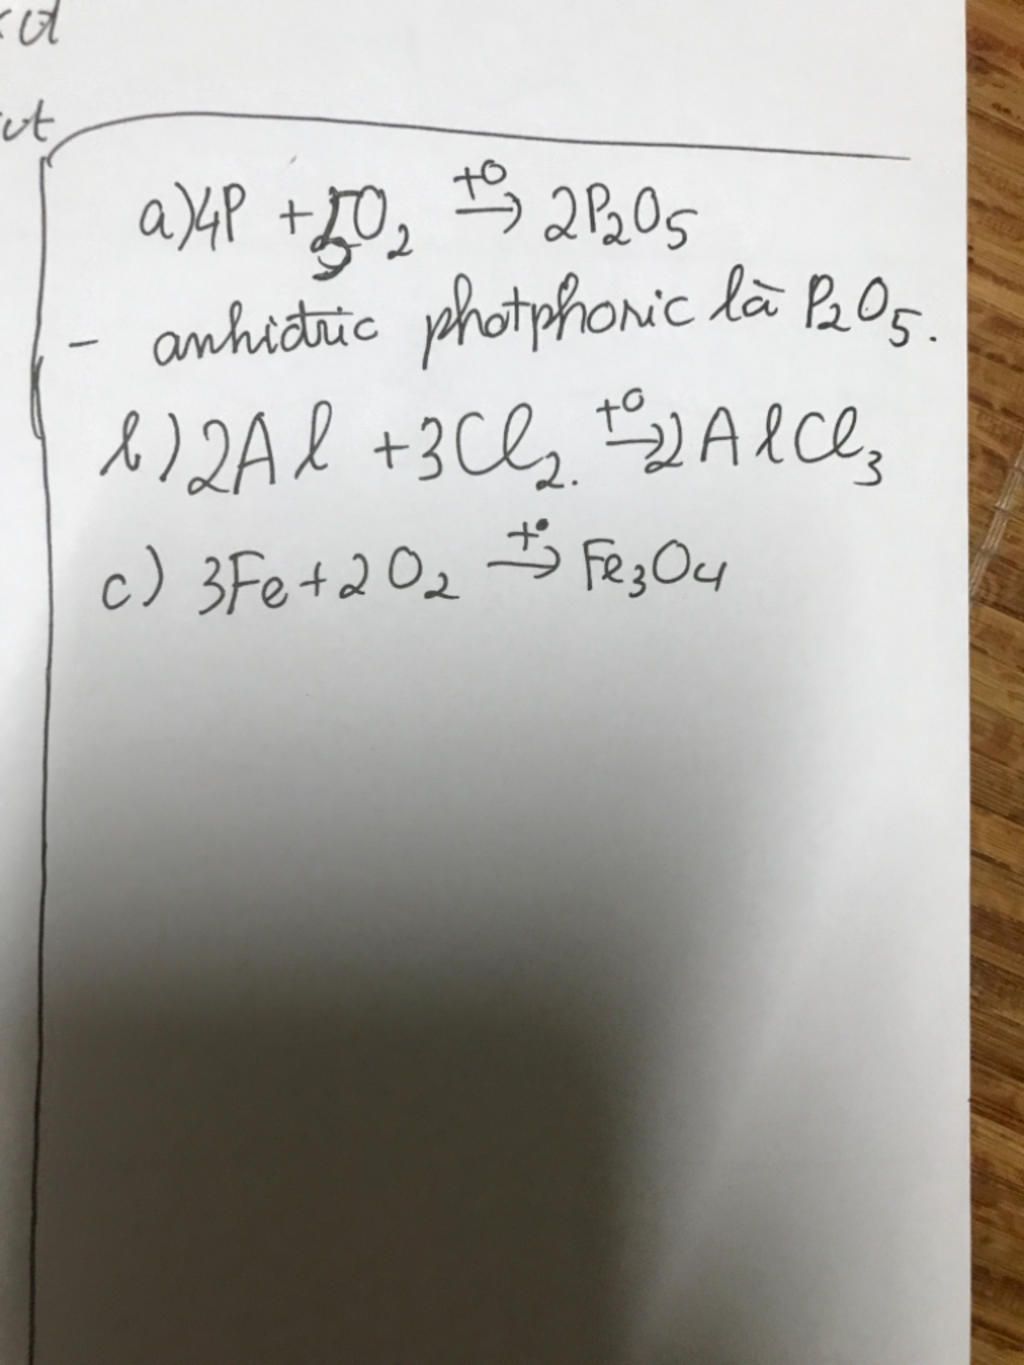 a) 4P + 5O₂ →t° 2P₂O₅
- anhiđric photphoric là P₂O₅.
b) 2Al + 3Cl₂. →t° 2AlCl₃
c) 3Fe + 2O₂ →t° Fe₃O₄